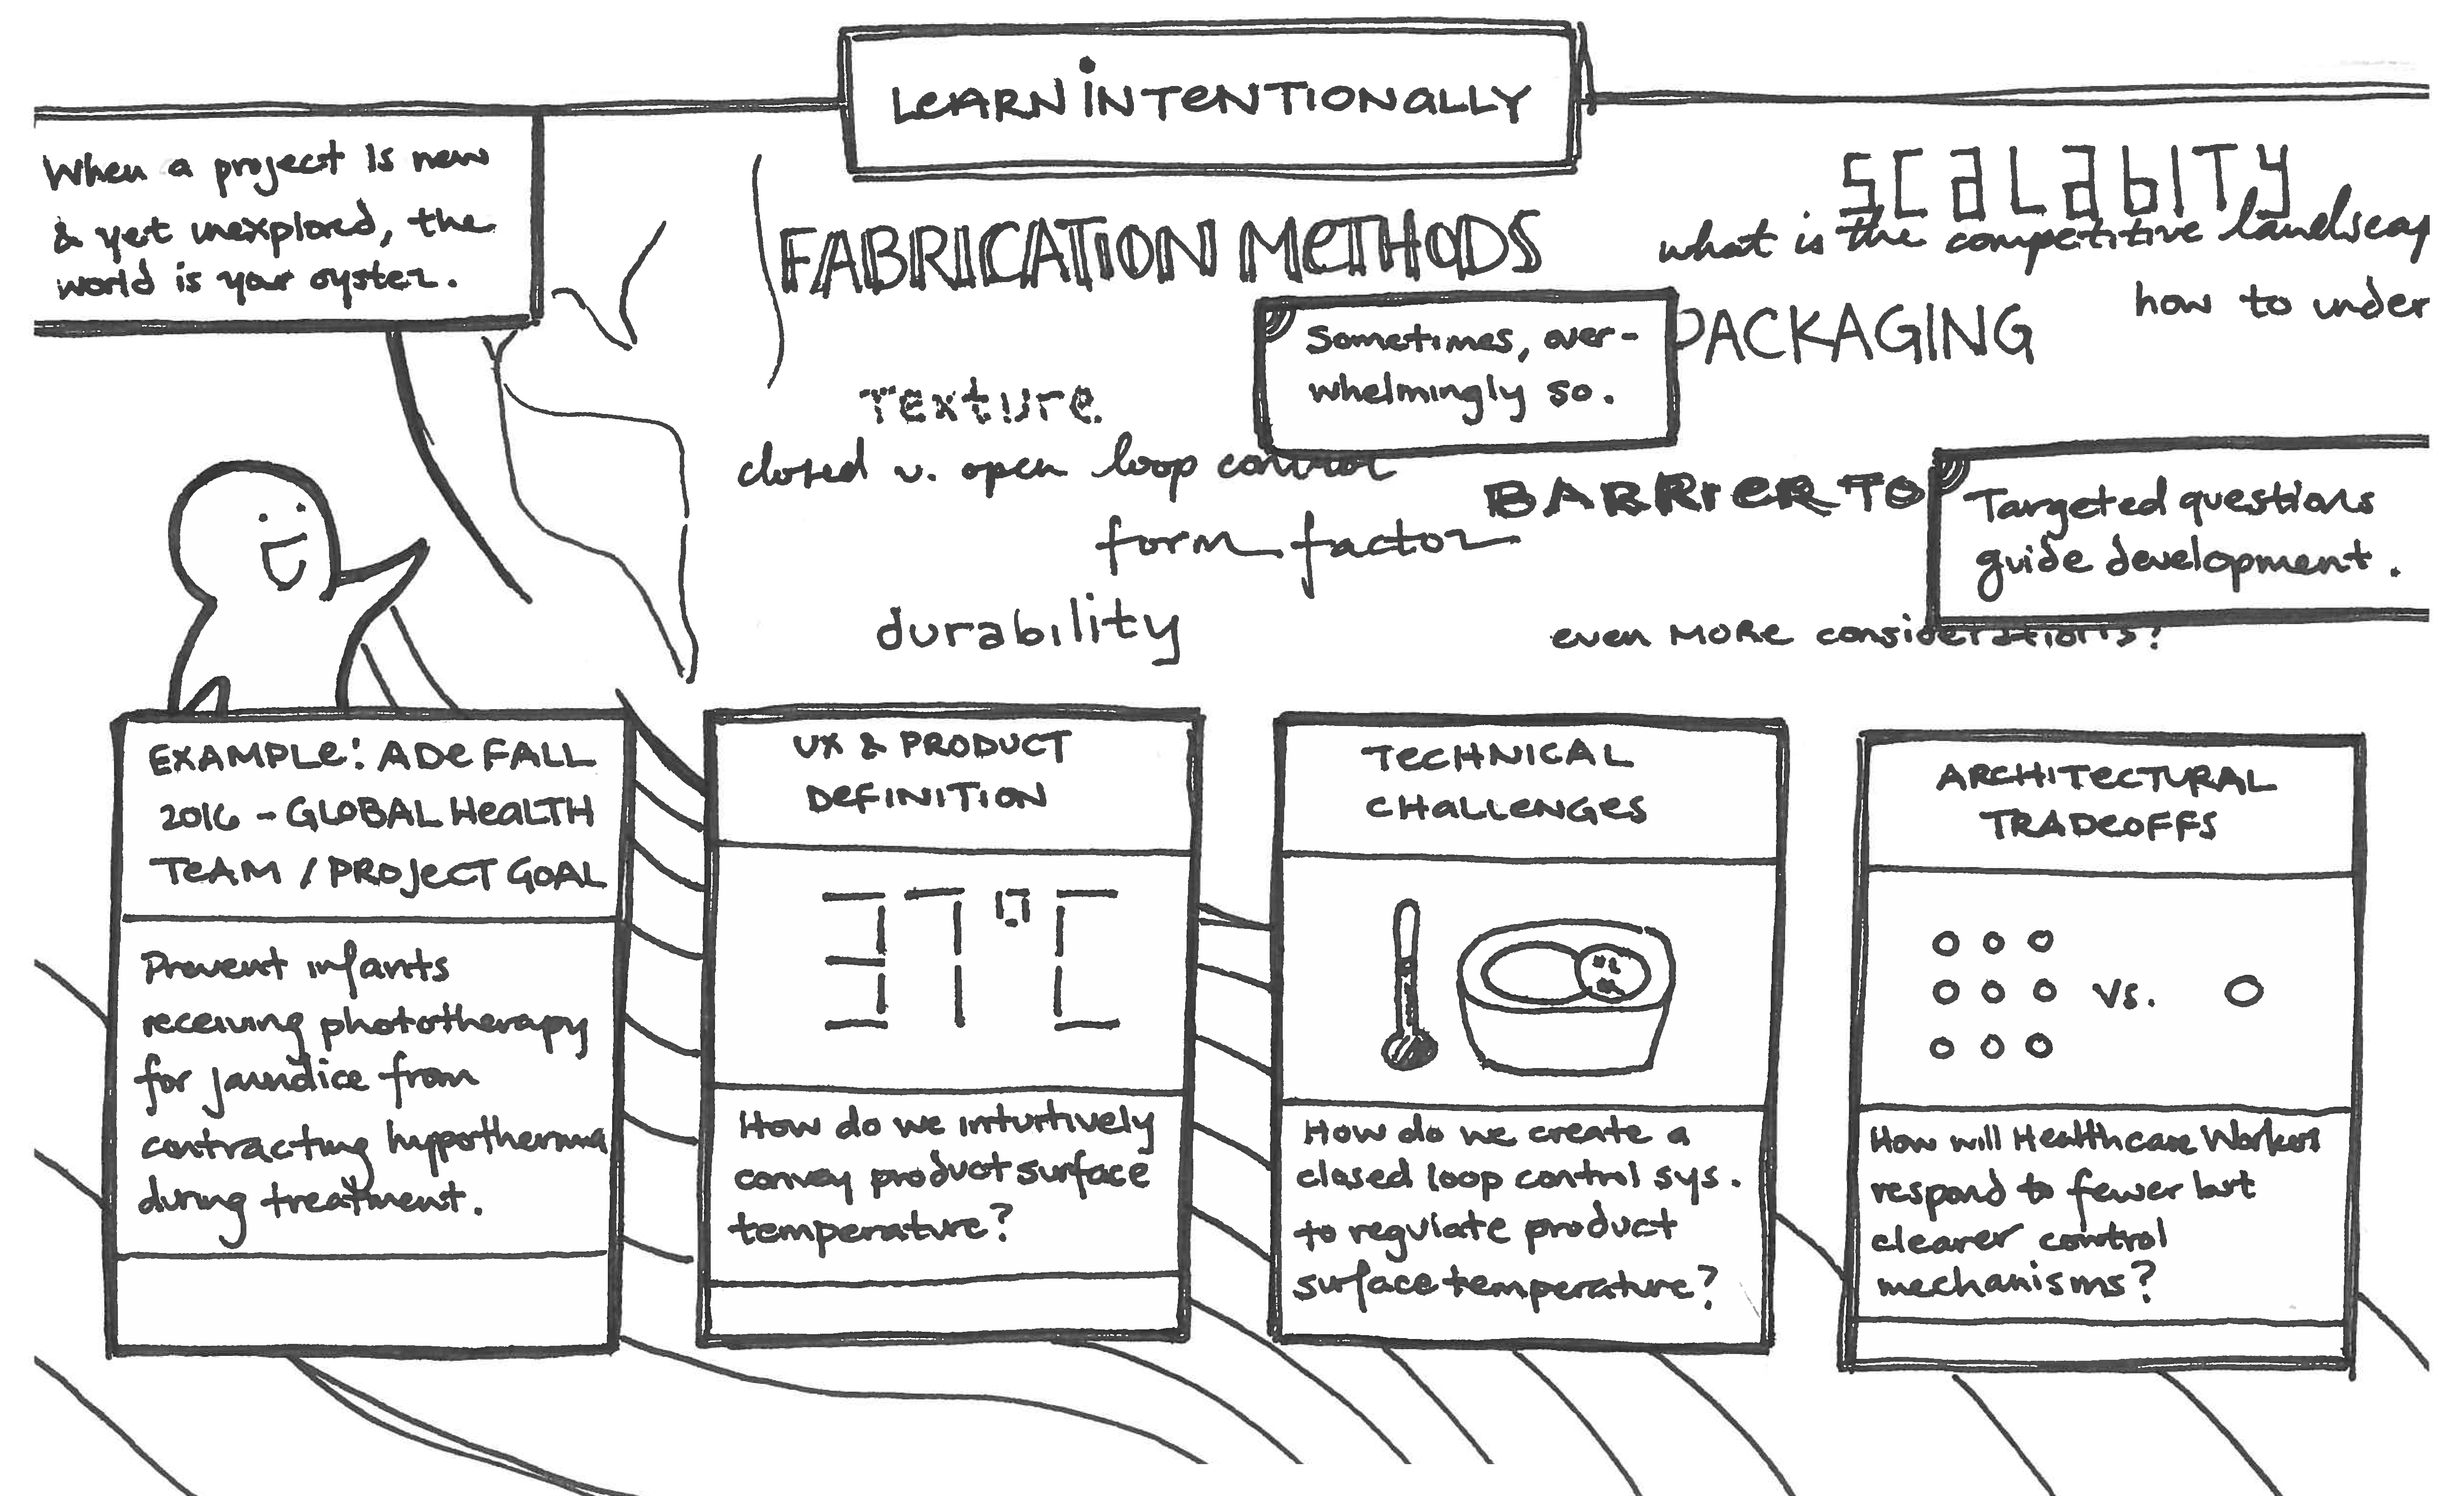 LEARN INTENTIONALLY
When a project is new
& yet unexplored, the
world is your oyster.
SCALABITY
what is the competitive landscap
FABRICATION METHODS
how to under
PACKAGING
Sometimes, over-
whelmingly so.
Texture
closed v. open loop control
BARRIER TO
Targeted questions
guide development.
form factor
durability
even MORE considerations?
EXAMPLE: ADE FALL
2016 - GLOBAL HEALTH
TEAM / PROJECT GOAL
Prevent infants
receiving phototherapy
for jaundice from
contracting hypothermia
during treatment.
UX & PRODUCT
DEFINITION
37°C
How do we intuitively
convey product surface
temperature?
TECHNICAL
CHALLENGES
How do we create a
closed loop control sys.
to regulate product
surface temperature?
ARCHITECTURAL
TRADEOFFS
vs.
How will Healthcare Workers
respond to fewer but
clearer control
mechanisms?